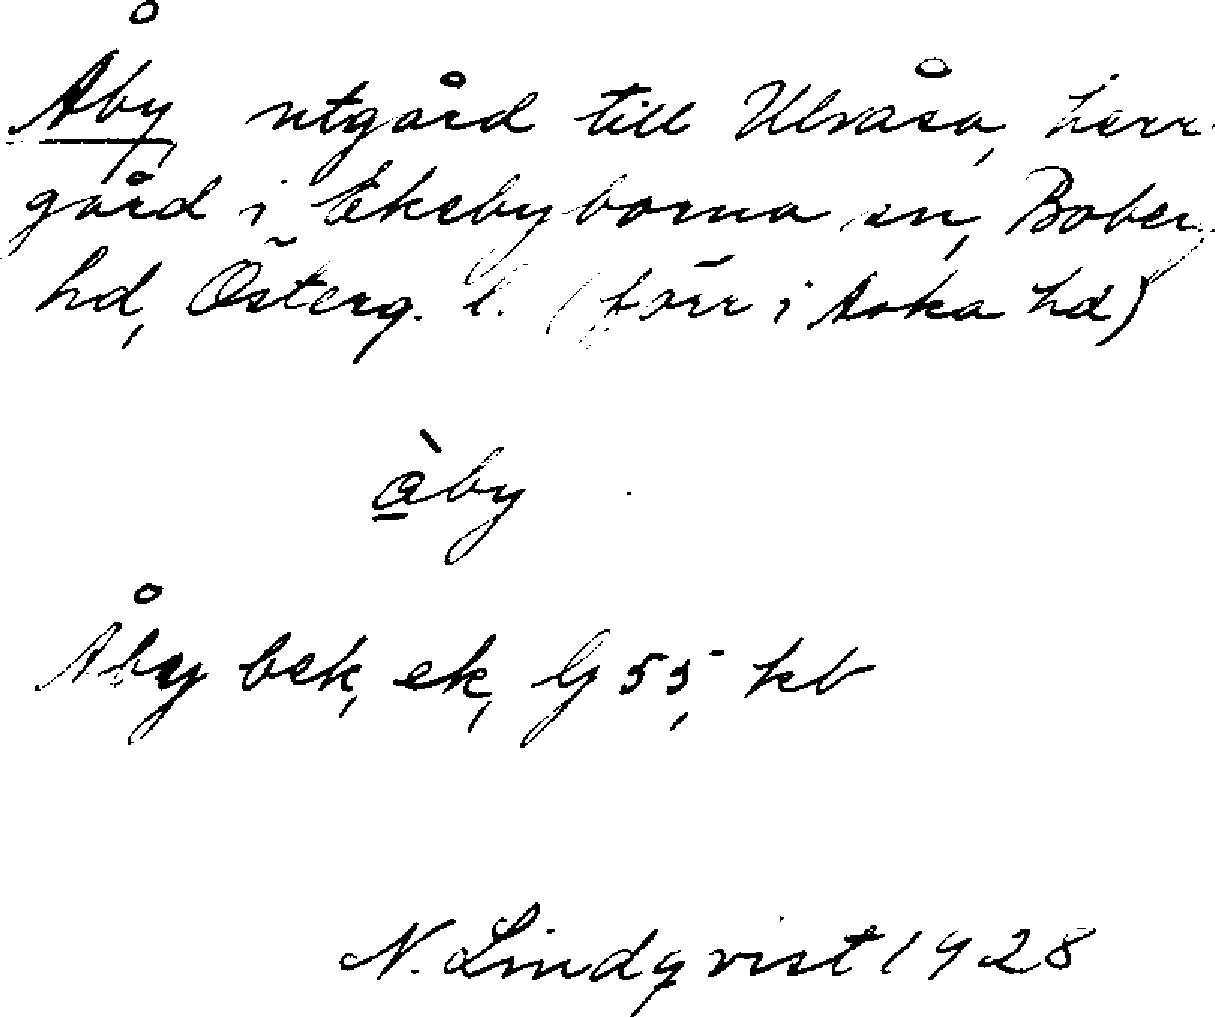 Åby, utgård till Ulvåsa, herr-
gård i Ekebyborna sn, Boberg
hd, Österg. l. (förr i Aska hd)
àby
Åby bek, ek, G 55, kb
N. Lindqvist 1928